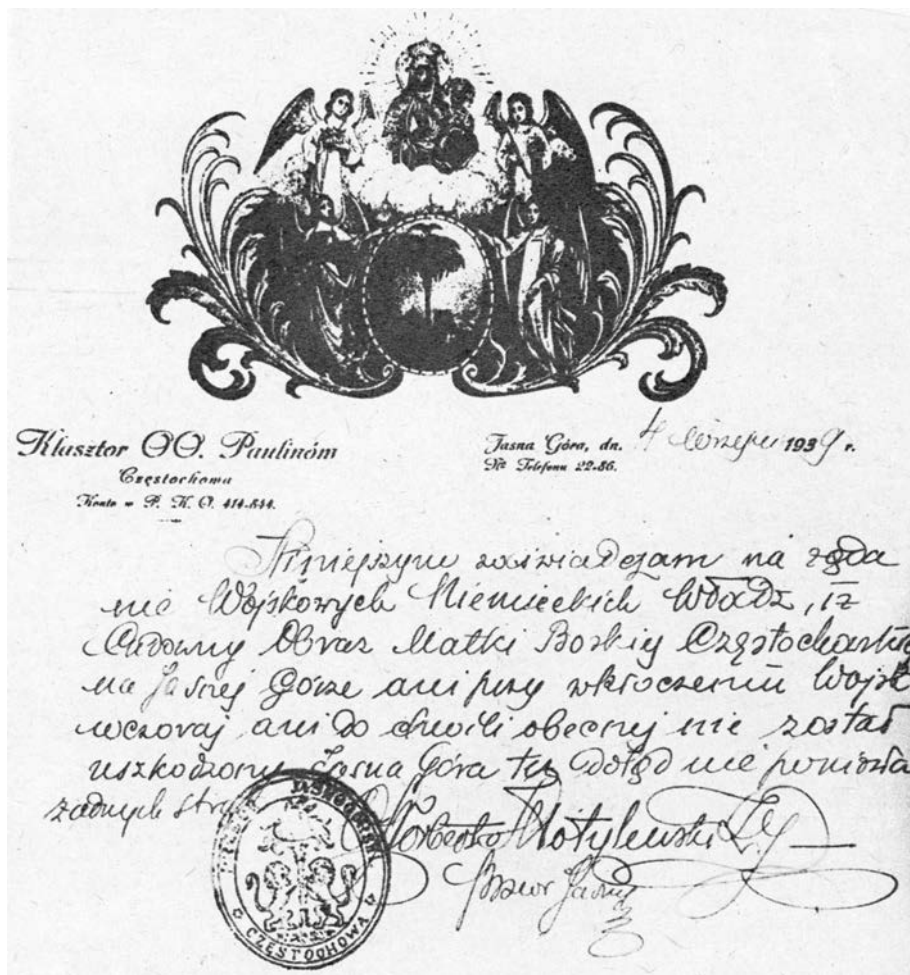 Klasztor OO. Paulinów
Częstochowa
Konto w P. K. O. 414-844.
Jasna Góra, dn. 4 września 1939 r.
Nr Telefonu 22-86.
Niniejszym zaświadczam na żąda
nie Wojskowych Niemieckich Władz, iż
Cudowny Obraz Matki Boskiej Częstochowskiej
na Jasnej Górze ani przy wkroczeniu Wojsk
wczoraj ani do chwili obecnej nie został
uszkodzony Jasna Góra też dotąd nie poniosła
żadnych strat
Norbert Motylewski
Przeor Jasnej
CZĘSTOCHOWA